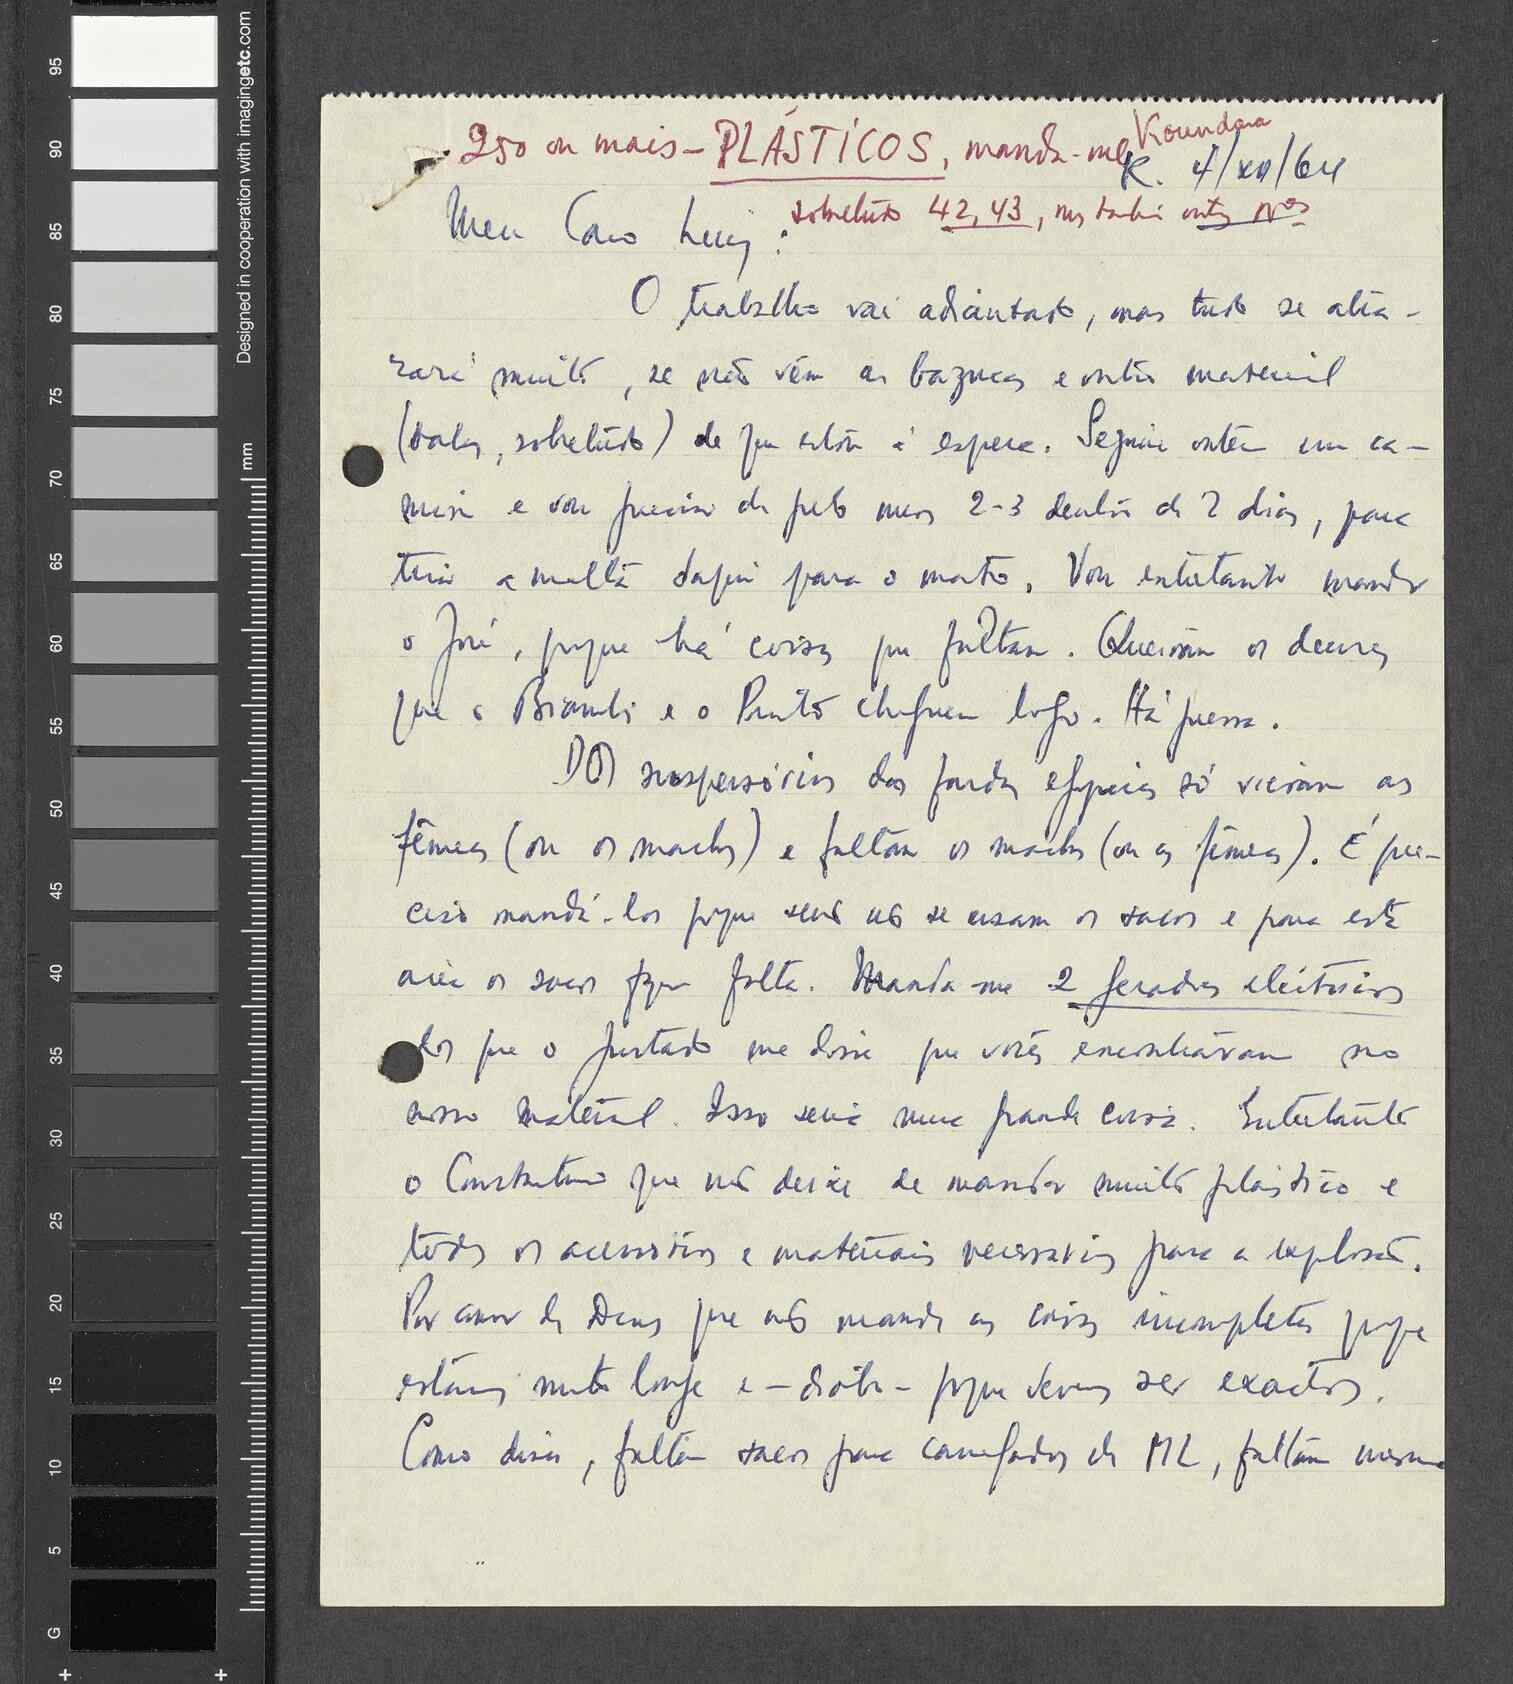 250 ou mais - PLÁSTICOS, manda-me Koundara
K. 4/XII/64
sobretudo 42, 43, mas também outros Nos
Meu Caro Luiz:
O trabalho vai adiantado, mas tudo se atra-
zará muito, se não vêm as bazucas e outro material
(balas, sobretudo) de que estou à espera. Seguiu ontem um ca-
mion e vou precisar de pelo menos 2-3 dentro de 2 dias, para
tirar a malta daqui para o mato. Vou entretanto mandar
o José, porque há coisas que faltam. Queiram os deuses
que o Bramli e o Pinto cheguem logo. Há pressa.
Dos suspensórios das fardas egípcias só vieram as
fêmeas (ou os machos) e faltam os machos (ou as fêmeas). É pre-
ciso mandá-los porque senão não se usam os sacos e para esta
area os sacos fazem falta. Manda-me 2 geradores eléctricos
dos que o Furtado me disse que vocês encontraram no
nosso material. Isso seria uma grande coisa. Entretanto
o Constantino que não deixe de mandar muito plástico e
todos os acessórios e materiais necessários para a explosão.
Por amor de Deus que não mande as coisas incompletas porque
estamos muito longe e - diabo - porque devemos ser exactos.
Como disse, faltam sacos para carregadores de ML, faltam mesmo
95
90
85
80
75
70
65
60
55
50
45
40
35
30
25
20
15
10
5
G
mm
Designed in cooperation with imagingetc.com